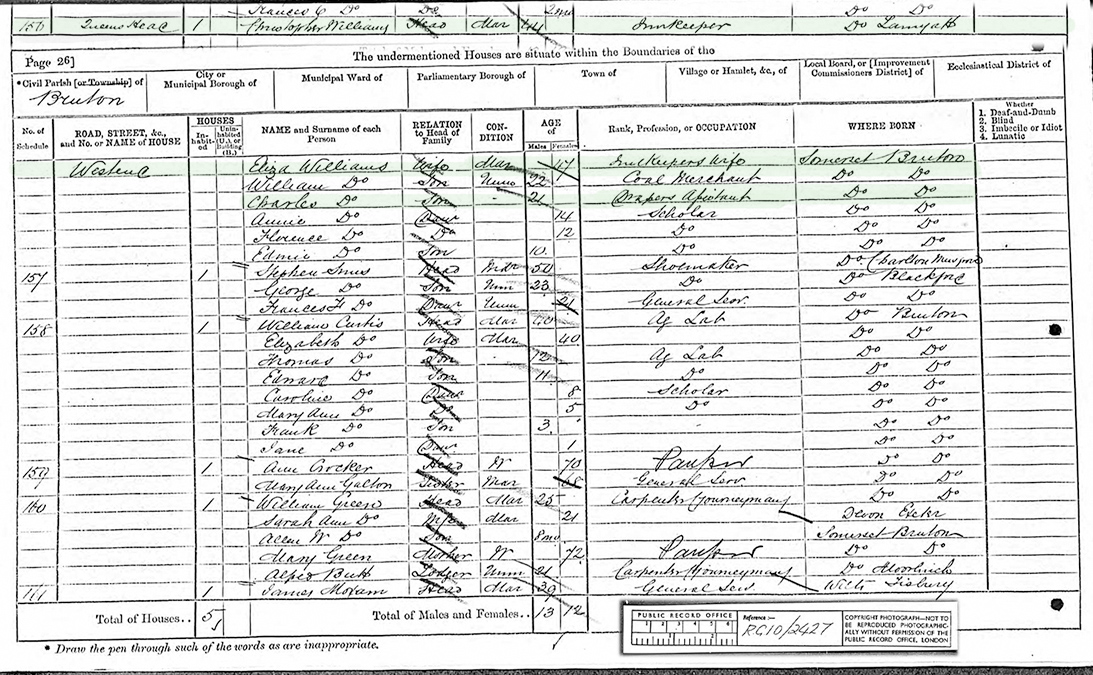 Frances C Do Do 2mo Do Do
156 Queens Head 1 Christopher Williams Head Mar 44 Innkeeper Do Lamyatt
The undermentioned Houses are situate within the Boundaries of the
Page 26]
*Civil Parish [or Township] of
Bruton
City or Municipal Borough of
Municipal Ward of
Parliamentary Borough of
Town of
Village or Hamlet, &c., of
Local Board, or [Improvement Commissioners District] of
Ecclesiastical District of
No. of Schedule
ROAD, STREET, &c., and No. or NAME of HOUSE
HOUSES
Inhabited
Uninhabited (U.), or Building (B.)
NAME and Surname of each Person
RELATION to Head of Family
CONDITION
AGE of
Males
Females
Rank, Profession, or OCCUPATION
WHERE BORN
Whether
1. Deaf-and-Dumb
2. Blind
3. Imbecile or Idiot
4. Lunatic
Westend Eliza Williams Wife Mar 47 Innkeepers Wife Somerset Bruton
William Do Son Unm 22 Coal Merchant Do Do
Charles Do Son 21 Drapers Assistant Do Do
Annie Do Daur 14 Scholar Do Do
Florence Do Do 12 Do Do Do
Edwin Do Son 10 Do Do Do
157 1 Stephen Head Mar 50 Shoemaker Do Charlton Musgrove
George Do Son Unm 23 Do Do Blackford
Frances F Do Daur Unm 21 General Serv. Do Do
158 1 William Curtis Head Mar 40 Ag Lab Do Bruton
Elizabeth Do Wife Mar 40 Do Do
Thomas Do Son 12 Ag Lab Do Do
Edward Do Son 11 Do Do Do
Caroline Do Daur 8 Scholar Do Do
Mary Ann Do 5 Do Do Do
Frank Do Son 3 Do Do
Jane Do Daur 1 Do Do
159 1 Ann Crocker Head W 70 Pauper Do Do
Mary Ann Galton Mar 68 General Serv Do Do
160 1 William Green Head Mar 25 Carpenter Journeyman Do Do
Sarah Ann Do Wife Mar 21 Devon
Allen W Do Son 8mo Somerset Bruton
Mary Green Mother W 72 Pauper Do Do
Alfred Butt Lodger Unm 21 Carpenter Journeyman Do
161 1 James Head Mar 39 General Serv. Wilts Tisbury
Total of Houses.. 5
Total of Males and Females.. 13 12
* Draw the pen through such of the words as are inappropriate.
PUBLIC RECORD OFFICE
1 2 3 4 5 6
Reference:-
RG10/2427
COPYRIGHT PHOTOGRAPH—NOT TO BE REPRODUCED PHOTOGRAPHICALLY WITHOUT PERMISSION OF THE PUBLIC RECORD OFFICE, LONDON